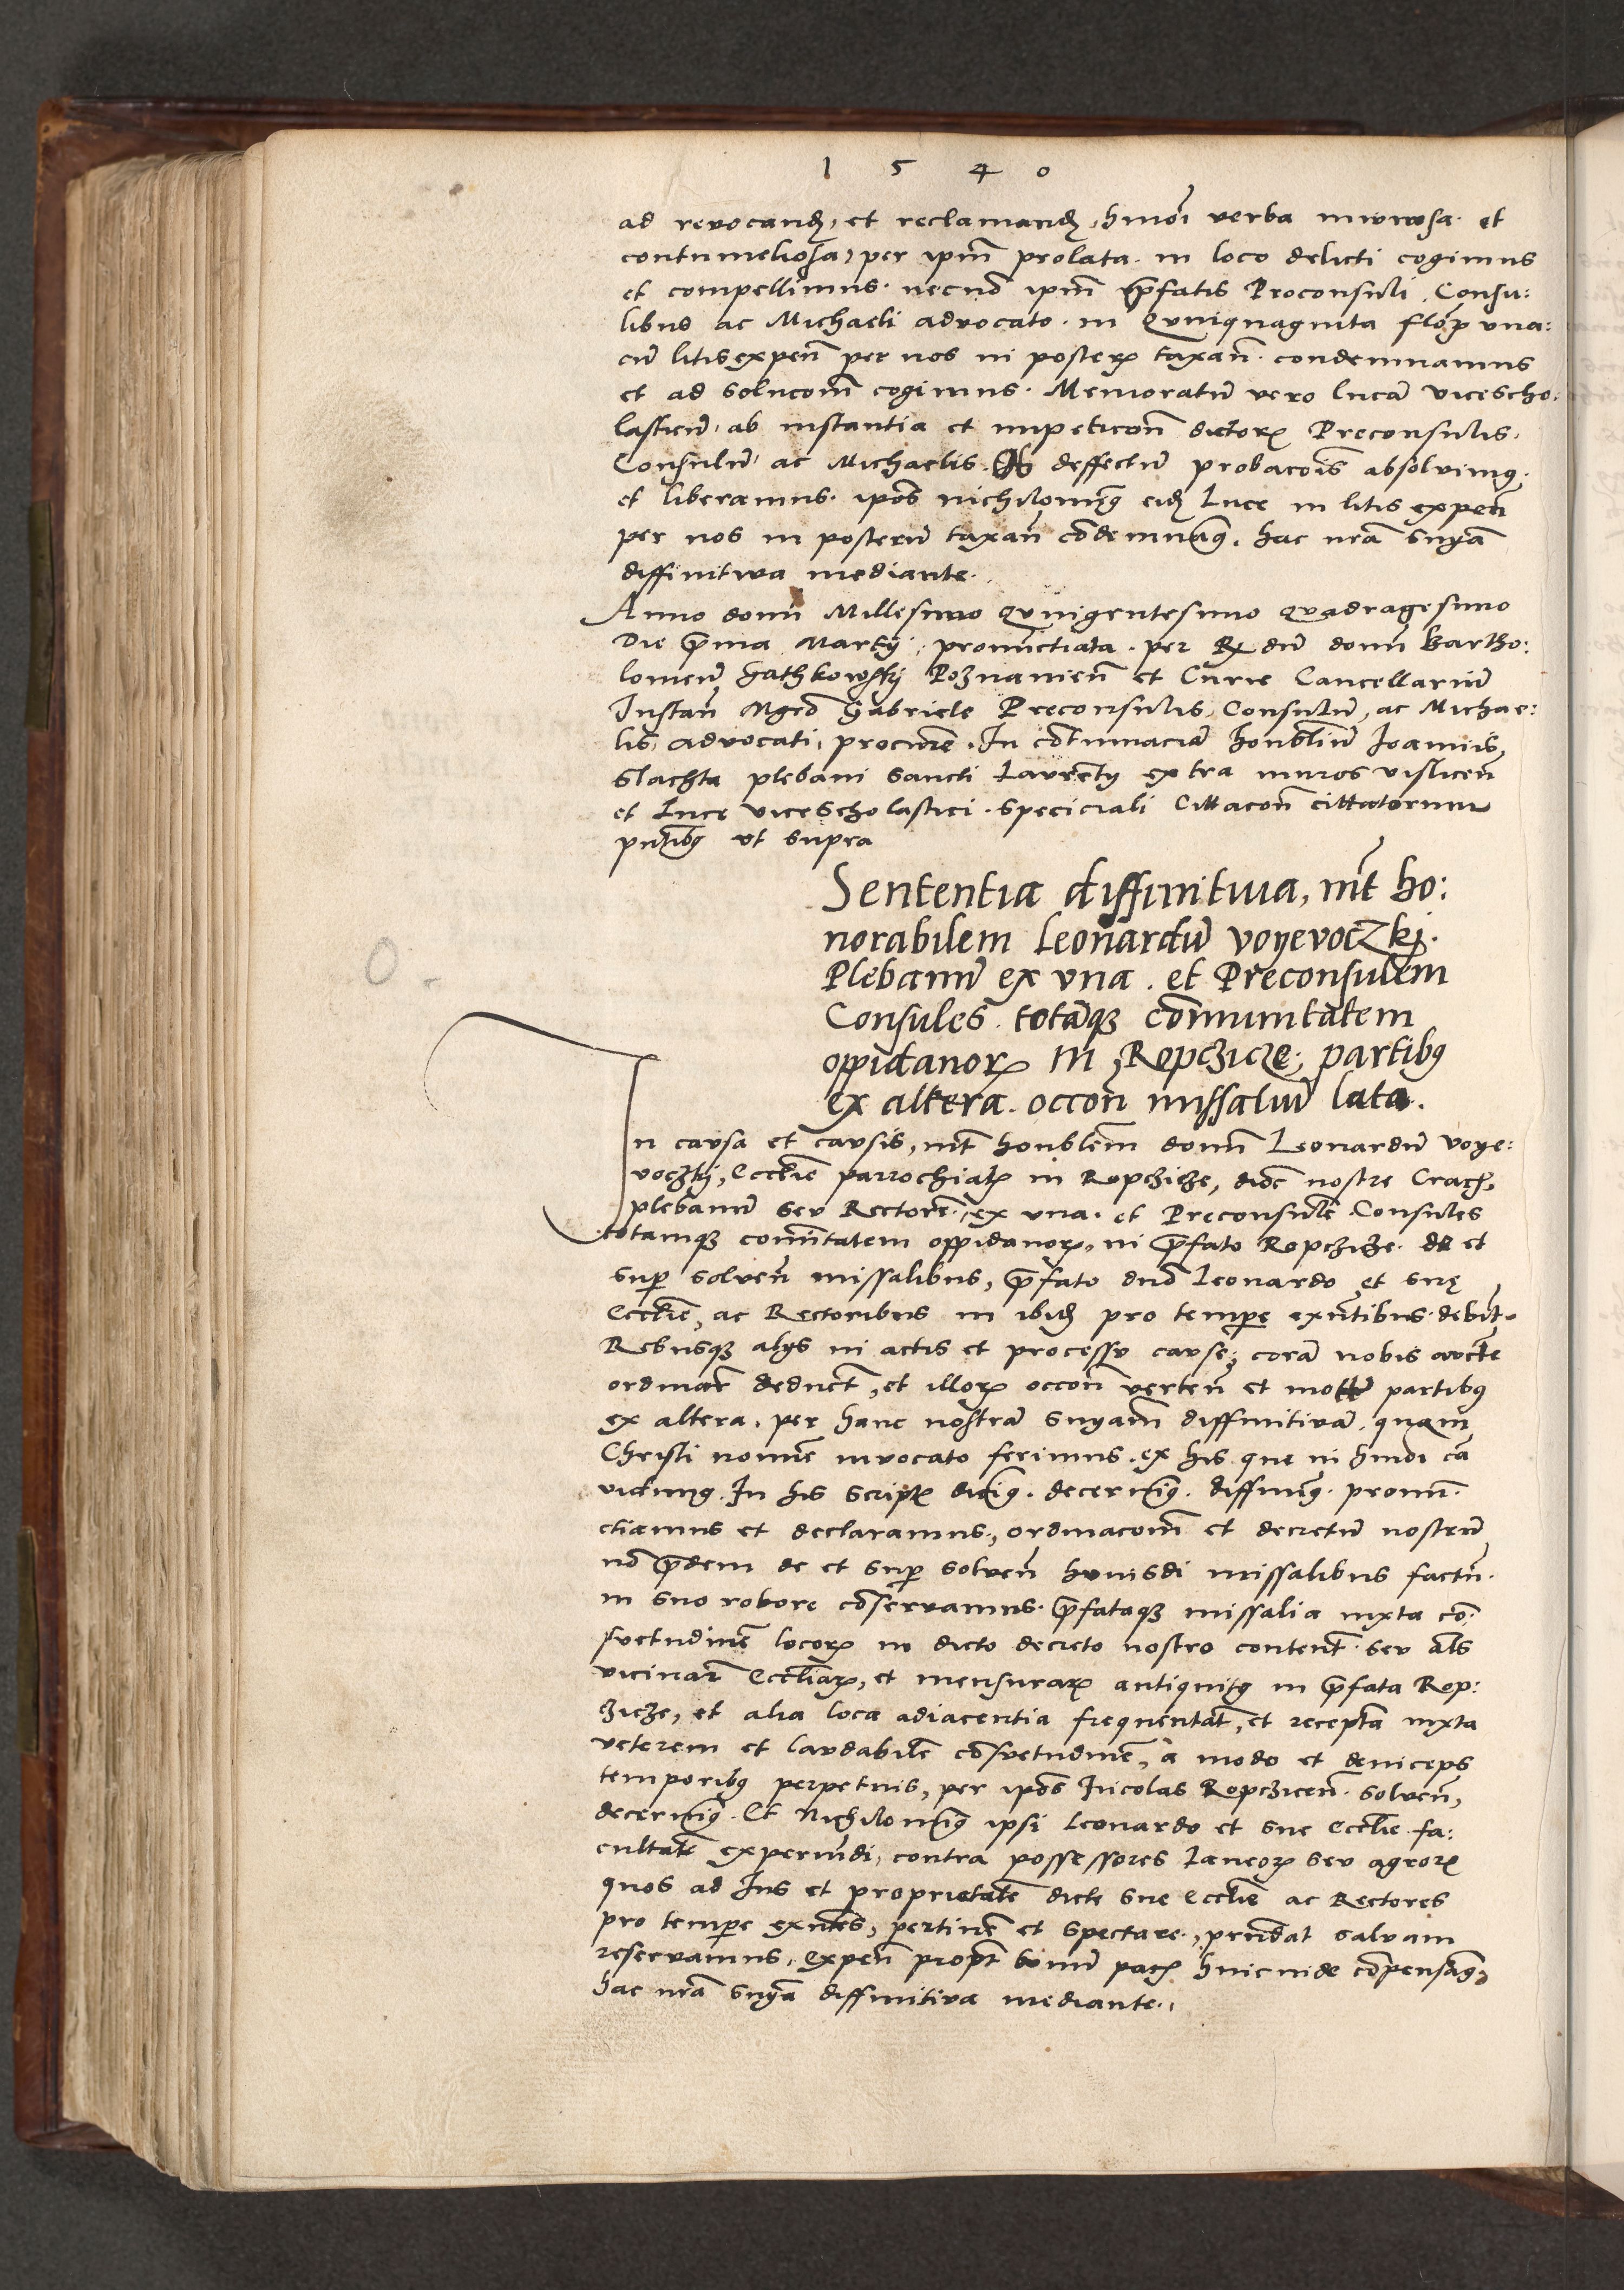 1 5 4 0
ad revocand, et reclamand, hmoi verba iniuriosa et
contumeliosa, per ipm prolata in loco delicti cogimus
et compellimus. necno ipm prefatis Proconsuli, Consu:
libus ac Michaeli advocato. in Quinquaginta flor una:
cu litis expen per nos in posteru taxan. condemnamus
et ad solucom cogimus. Memoratu vero Lucā viceScho:
lasticū. ab instantia et impeticon dictorꝫ Preconsulis,
Consulū, ac Michaelis. Ob deffectū probacois absolvimꝰ,
et liberamus. ipos nichilominꝰ eidꝫ Luce in litis expen
per nos in posterū taxan cōdemnamꝰ. hac nrā snyā
diffinitiva mediante.
Anno domi Millesimo Quingentesimo Quadragesimo
Die prima Martij, pronunctiata. per Rdū domi Bartho:
lomeū Gathkowskj Poznanien et Curie Cancellariū
Instan Mgro Gabriele Preconsulis, Consulū, ac Michae:
lis, advocati, procure. In cōtumaciā honbliū Joannis,
Slachta plebani Sancti Laurenty extra muros vislicen
et Luce viceScholastici. speciciali Cittacon cittatorum
pntibꝰ ut supra
Sententia diffinitiva, int ho:
norabilem Leonardū voyevoczkj.
Plebanū ex una. et Preconsulem
Consules. totāqꝫ cōmunitatem
oppidanorꝫ in Ropczicze. partibꝰ
ex altera. occon missaliū lata.
In causa et causis, int honblem domi Leonardū voye:
voczkj, Ecclie parrochialꝫ in Ropczicze, dioc nostre Crac,
plebanū seu Rectorē. ex una. et Preconsulē Consules
totamqꝫ comitatem oppidanorꝫ, in prefato Ropczicze. de et
super solven missalibus, prefato dno Leonardo et sue
Ecclie, ac Rectoribus in ibidꝫ pro tempore exntibus. debit.
Rebusqꝫ alijs in actis et processu cause, corā nobis aucte
ordinar deduct, et illorꝫ occon verten et mot partibꝰ
ex altera. per hanc nostrā snyam diffinitivā, quam
Christi nomine invocato ferimus. ex his que in hmoi cā
vidimꝰ. In his scriptꝫ dicimꝰ. decernimꝰ. diffinimꝰ. pronun
ctiamus et declaramus, ordinacom et decretū nostrū
no pridem de et super solven huiusdi missalibus factū.
in suo robore cōservamus. prefataqꝫ missalia iuxta cō:
suetudinē locorꝫ in dicto decreto nostro content. seu als
vicinarꝫ Eccliarꝫ, et mensurarꝫ antiquitꝰ in prefata Rop:
czicze, et alia loca adiacentia frequentat, et recepta iuxta
veterem et laudabilē cōsuetudinē, a modo et deinceps
temporibꝰ perpetuis, per ipos Incolas Ropczicen. solven,
decernimꝰ. Et Nichilominꝰ ipsi Leonardo et sue Ecclie fa:
cultatē experiundi, contra possessores Laneorꝫ seu agrorꝫ
quos ad Ius et proprietatē dicte sue Ecclie ac Rectores
pro tempore exntes, pertinē et spectare, prndat salvam
reservamus, Expen propt bonū pacꝫ hincinde cōpensamꝰ,
hac nrā snyā diffinitiva mediante.